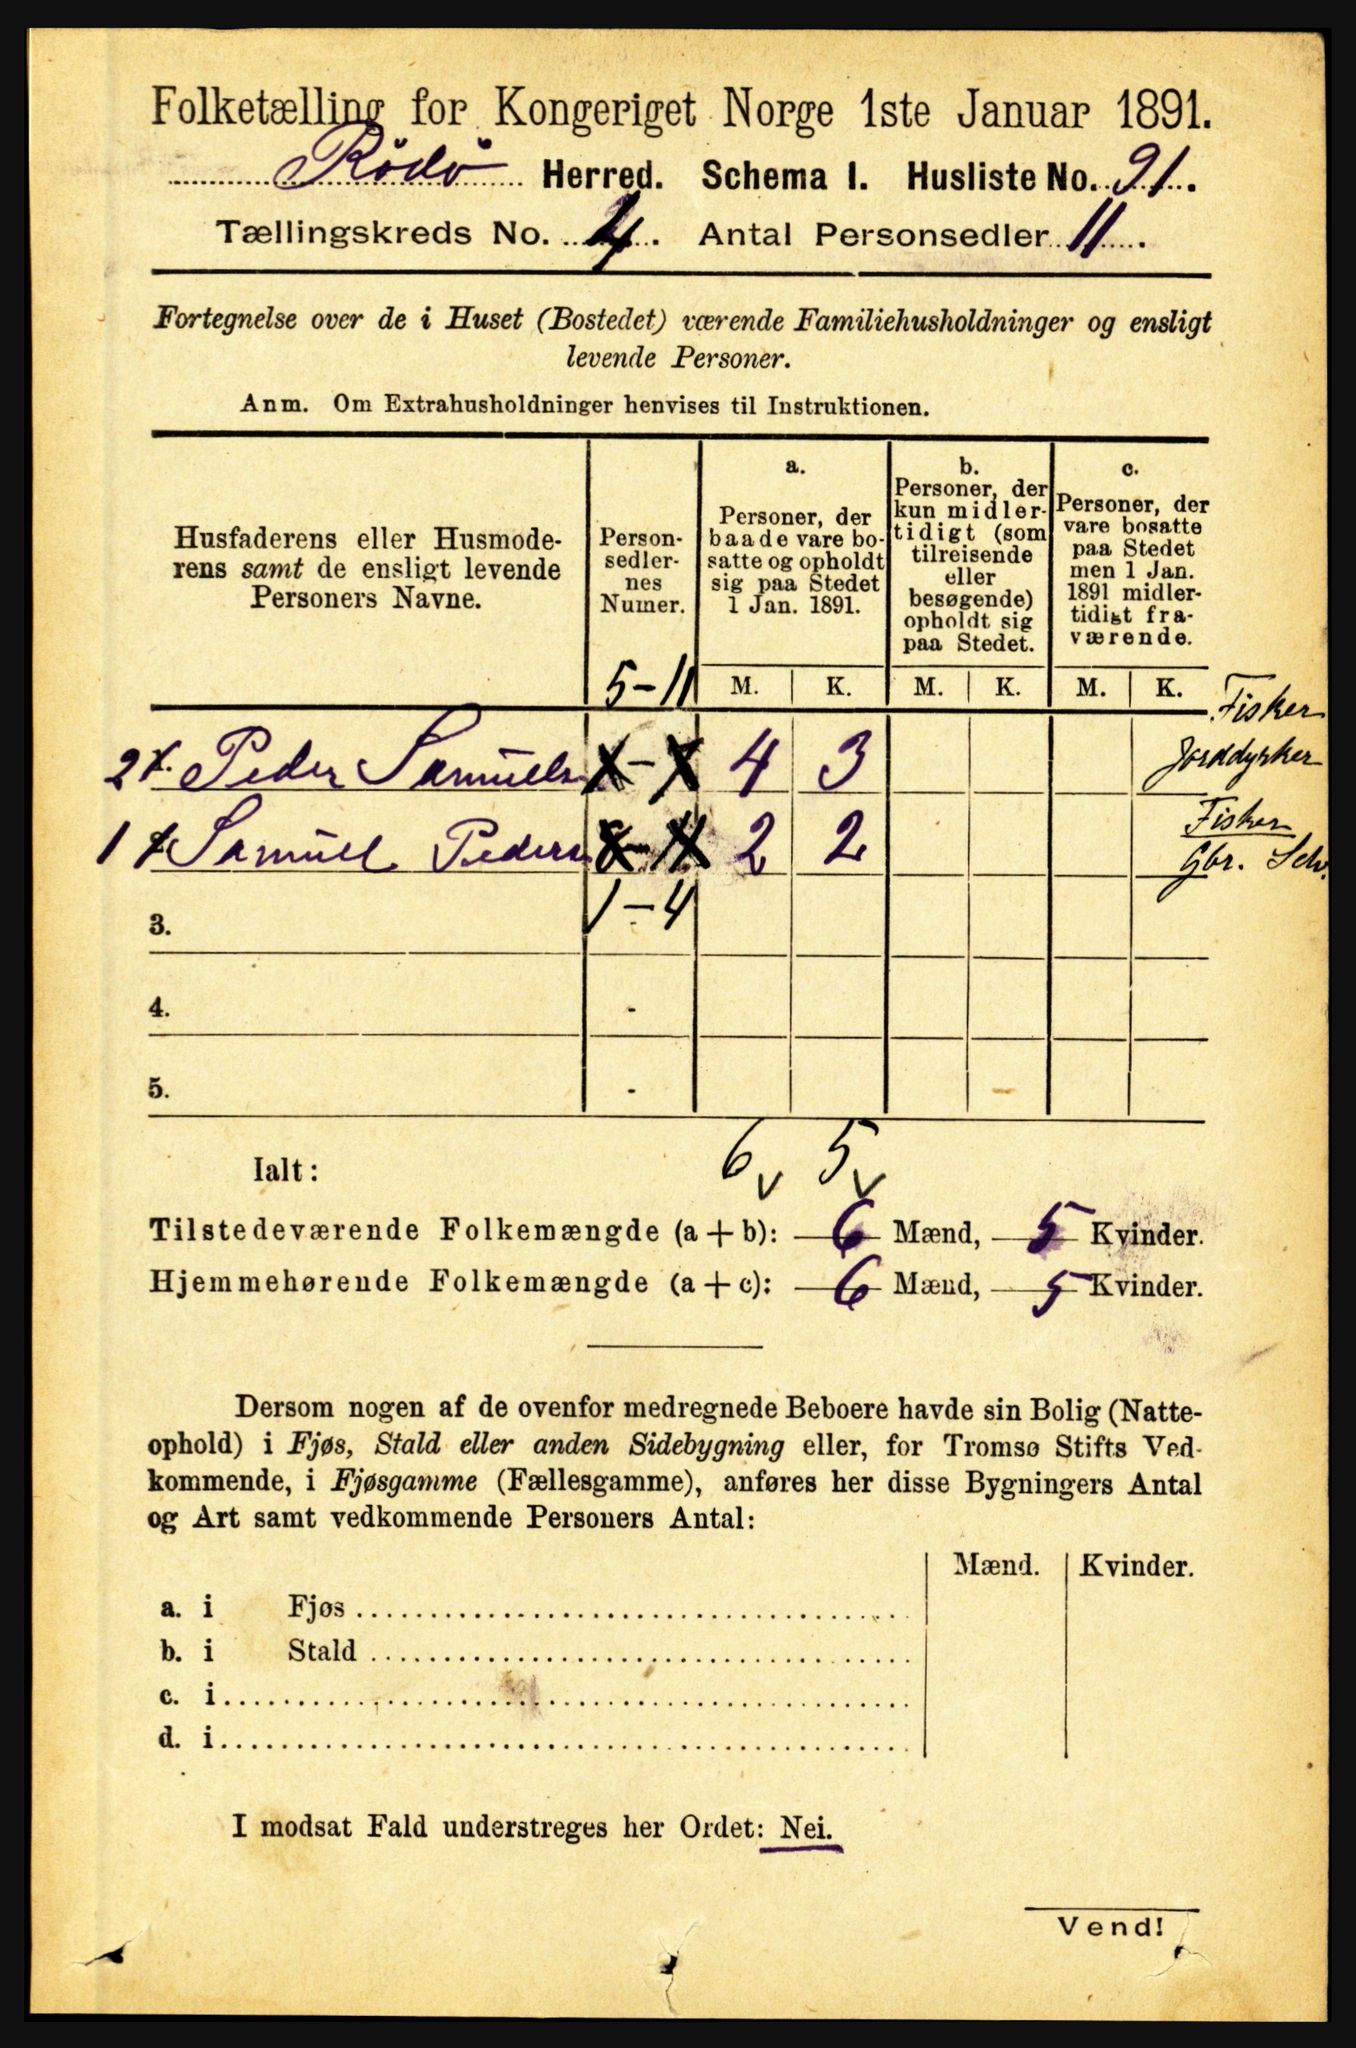 Folketælling for Kongeriget Norge 1ste Januar 1891.
Rödö Herred. Schema I. Husliste No. 91.
Tællingskreds No. 4. Antal Personsedler 11.
Fortegnelse over de i Huset (Bostedet) værende Familiehusholdninger og ensligt
levende Personer.
Anm. Om Extrahusholdninger henvises til Instruktionen.
Husfaderens eller Husmode-
rens samt de ensligt levende
Personers Navne.
Person-
sedler-
nes
Numer.
5-11
a.
Personer, der
baade vare bo-
satte og opholdt
sig paa Stedet
1 Jan. 1891.
b.
Personer, der
kun midler-
tidigt (som
tilreisende
eller
besøgende)
opholdt sig
paa Stedet.
c.
Personer, der
vare bosatte
paa Stedet
men 1 Jan.
1891 midler-
tidigt fra-
værende.
M. K. M. K. M. K.
Fisker
2 Peder Samuels 4 3 Jorddyrker
Fisker
1 Samuel Peders 8-11 2 2 Gbr. Selv.
3. 1-4
4. -
5. -
Ialt: 6 v 5 v
Tilstedeværende Folkemængde (a + b): 6 Mænd, 5 Kvinder.
Hjemmehørende Folkemængde (a + c): 6 Mænd, 5 Kvinder.
Dersom nogen af de ovenfor medregnede Beboere havde sin Bolig (Natte-
ophold) i Fjøs, Stald eller anden Sidebygning eller, for Tromsø Stifts Ved-
kommende, i Fjøsgamme (Fællesgamme), anføres her disse Bygningers Antal
og Art samt vedkommende Personers Antal:
Mænd. Kvinder.
a. i Fjøs
b. i Stald
c. i
d. i
I modsat Fald understreges her Ordet: Nei.
Vend!